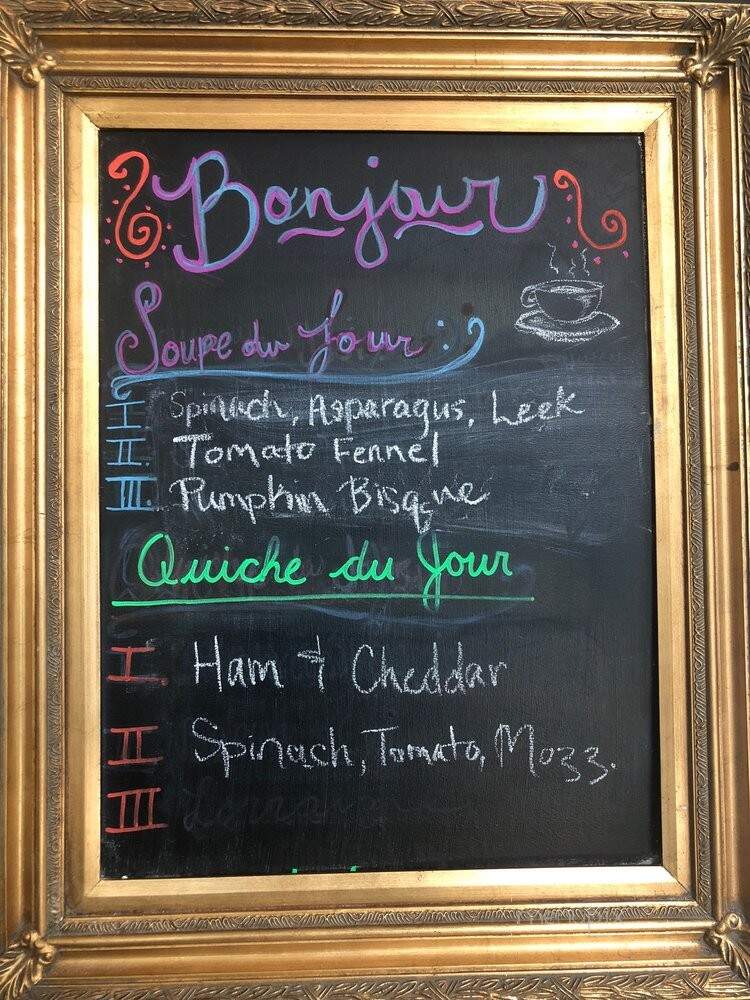 Bonjour
Soupe du Jour :
I. Spinach, Asparagus, Leek
II. Tomato Fennel
III. Pumpkin Bisque
Quiche du Jour
I. Ham & Cheddar
II Spinach, Tomato, Mozz.
III